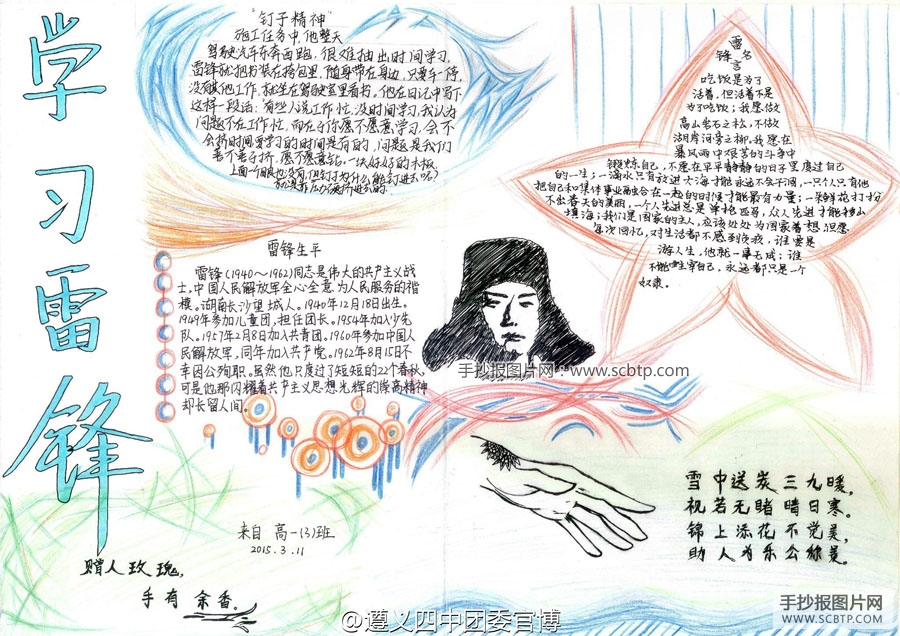 学习雷锋
"钉子精神"
施工任务中,他整天
驾驶汽车东奔西跑,很难抽出时间学习,
雷锋就把书装在挎包里,随身带在身边,只要车一停,
没有其他工作,就坐在驾驶室里看书。他在日记中写下
这样一段话:有些人说工作忙、没时间学习,我认为
问题不在工作忙,而在于你愿不愿意学习,会不
会挤时间。要学习的时间是有的,问题是我们
善不善于挤,愿不愿意钻。一块好好的木板,
上面一个眼也没有,但钉子为什么能钉进去呢?
雷锋名言
吃饭是为了
活着,但活着不是
为了吃饭;我愿做
高山岩石之松,不做
湖岸河旁之柳。我愿在
暴风雨中艰苦的斗争中
锻炼自己,不愿在平平静静的日子里度过自己
的一生;一滴水只有放进大海才能永远不会干涸,一个人只有他
把自己和集体事业融合在一起的时候才能最有力量;一朵鲜花打扮
不出春天的美丽,一个人先进总是单枪匹马,众人先进才能移山
填海;我们是国家的主人,应该处处为国家着想。但愿
每次回忆,对生活都不感到负疚,谁要是
游戏人生,他就一事无成;谁
不能主宰自己,永远都只是一个
奴隶。
雷锋生平
雷锋(1940～1962)同志是伟大的共产主义战
士,中国人民解放军全心全意为人民服务的楷
模。湖南长沙望城人。1940年12月18日出生。
1949年参加儿童团,担任团长。1954年加入少先
队。1957年2月8日加入共青团。1960年参加中国人
民解放军,同年加入共产党。1962年8月15日不
幸因公殉职。虽然他只度过了短短的22个春秋,
可是他那闪耀着共产主义思想光辉的崇高精神
却长留人间。
手抄报图片网：www.scbtp.com
雪中送炭三九暖,
视若无睹晴日寒。
锦上添花不觉美,
助人为乐公称美。
来自 高一(3)班
2015.3.11
赠人玫瑰,
手有余香。
@遵义四中团委官博
手抄报图片网
WWW.SCBTP.COM